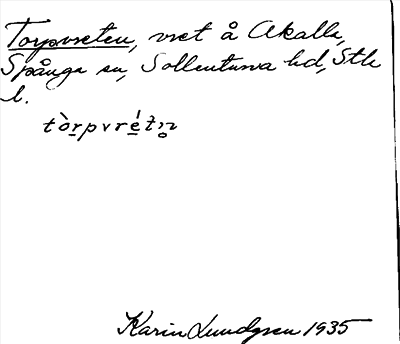 Torpvreten, vret å Akalla,
Spånga sn, Sollentuna hd, Sthlms
l.
tòrpvrétn̥
Karin Lundgren 1935